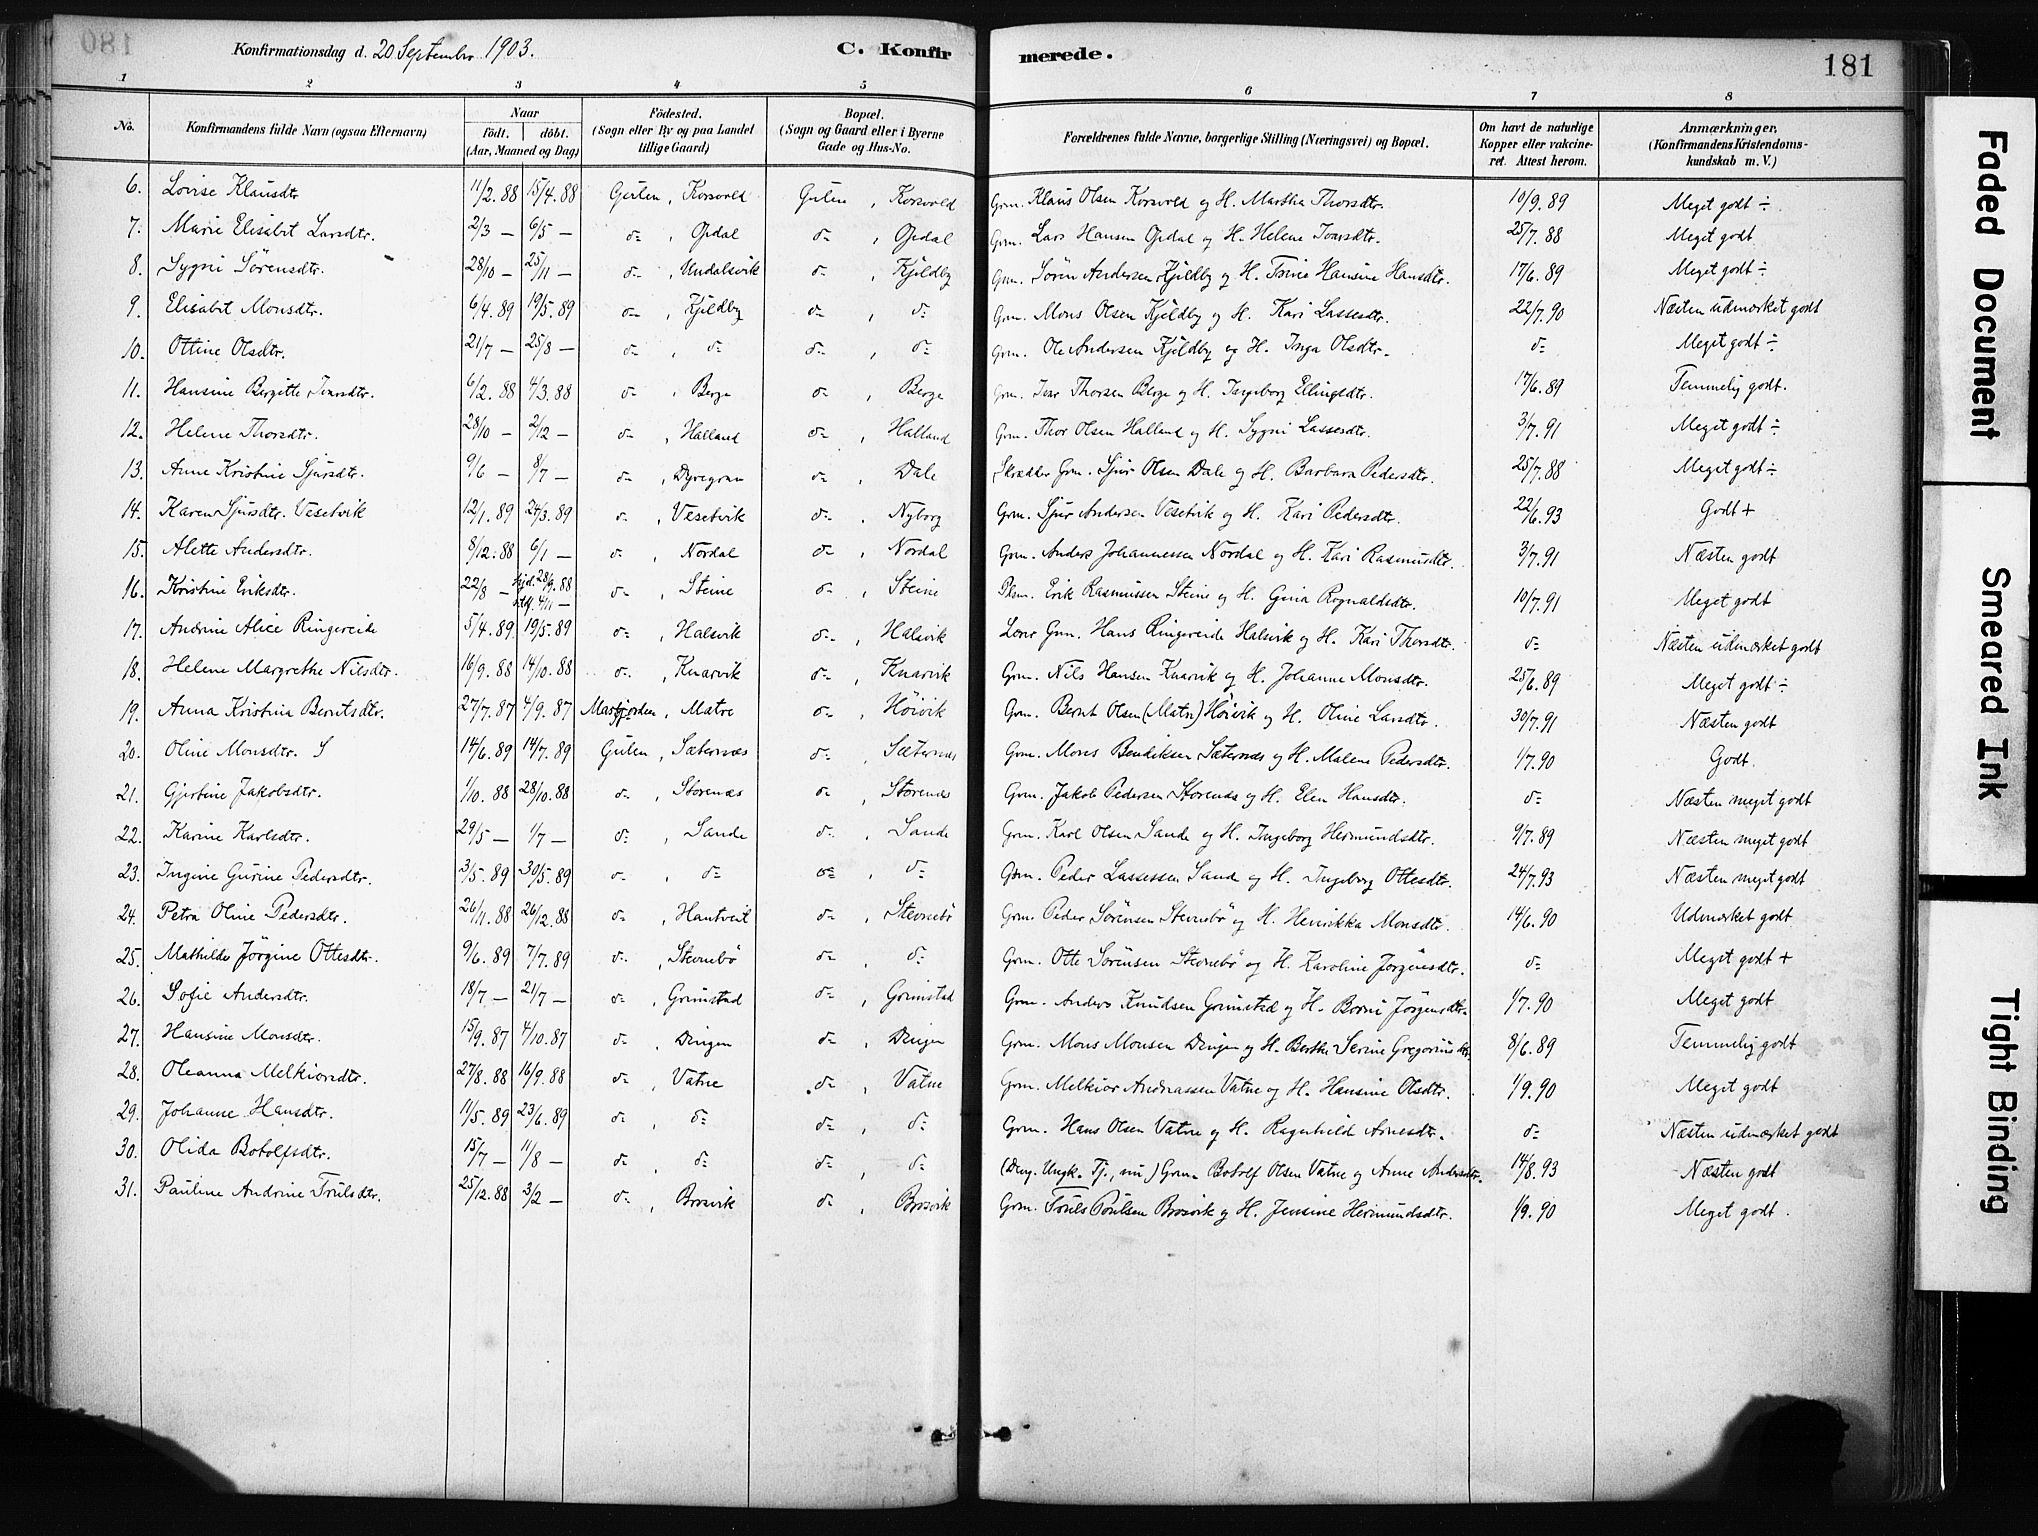 180
Konfirmationsdag d. 20 September 1903.
C. Konfirmerede.
181
1 2 3 4 5 6 7 8
No. Konfirmandens fulde Navn (ogsaa Efternavn) Naar födt. döbt. (Aar, Maaned og Dag) Födested. (Sogn eller By og paa Landet tillige Gaard) Bopæl. (Sogn og Gaard eller i Byerne Gade og Hus-No. Forældrenes fulde Navne, borgerlige Stilling (Næringsvei) og Bopæl. Om havt de naturlige Kopper eller vakcineret. Attest herom. Anmærkninger. (Konfirmandens Kristendomskundskab m. V.)
6. Lovise Klausdtr 11/2.88 15/4.88 Gulen, Korsvold Gulen, Korsvold Grm. Klaus Olsen Korsvold og H. Martha Thorsdtr. 10/9.89 Meget godt ÷
7. Marie Elisabet Larsdtr. 2/3 – 6/5 – d=, Opdal d=, Opdal Grm. Lars Hansen Opdal og H. Helene Ivarsdtr. 25/7.88 Meget godt
8. Sygni Sörensdtr. 28/10 – 25/11 – d=, Undalsvik d=, Kjeldby Grm. Sören Andersen Kjeldby og H. Trine Hansine Hansdtr. 17/6.89 Meget godt ÷
9. Elisabet Monsdtr. 6/4.89 19/5.89 d=, Kjeldby d=, d= Grm. Mons Olsen Kjeldby og H. Kari Lassesdtr. 22/7.90 Næsten udmærket godt
10. Ottine Olsdtr. 21/7 – 25/8 – d=, d= d=, d= Grm. Ole Andersen Kjeldby og H. Inga Olsdtr. d= Meget godt ÷
11. Hansine Bergitte Ivarsdtr. 6/2.88 4/3.88 d=, Berge d=, Berge Grm. Ivar Thorsen Berge og H. Ingeborg Ellingsdtr. 17/6.89 Temmelig godt.
12. Helene Thorsdtr. 28/10 – 2/12 – d=, Halland d=, Halland Grm. Thor Olsen Halland og H. Sygni Lassesdtr. 3/7.91 Meget godt ÷
13. Anne Kristine Sjursdtr. 9/6 – 8/7 – d=, Dyregrav d=, Dale Skrædder Grm. Sjur Olsen Dale og H. Barbara Pedersdtr. 25/7.88 Meget godt ÷
14. Karen Sjursdtr. Vesetvik 12/1.89 24/3.89 d=, Vesetvik d=, Nyborg Grm. Sjur Andersen Vesetvik og H. Kari Pedersdtr. 22/6.93 Godt +
15. Alette Andersdtr. 8/12.88 6/1 – d=, Nordal d=, Nordal Grm. Anders Johannessen Nordal og H. Kari Rasmusdtr. 3/7.91 Næsten godt
16. Kristine Eriksdtr. 22/8 – hjd. 28/9.88 stdf. 4/11 – d=, Steine d=, Steine Plsm. Erik Rasmussen Steine og H. Gina Rognaldsdtr. 10/7.91 Meget godt
17. Andrine Alice Ringereide 5/4.89 19/5.89 d=, Halsvik d=, Halsvik Lærer Grm. Hans Ringereide Halsvik og H. Kari Thorsdtr. d= Næsten udmærket godt
18. Helene Margrethe Nilsdtr. 16/9.88 14/10.88 d=, Knarvik d=, Knarvik Grm. Nils Hansen Knarvik og H. Johanne Monsdtr. 25/6.89 Meget godt ÷
19. Anna Kristina Berntsdtr. 27/7.87 4/9.87 Masfjorden, Matre d=, Höivik Grm. Bernt Olsen (Matre) Höivik og H. Oline Larsdtr. 30/7.91 Næsten godt
20. Oline Monsdtr. S 14/6.89 14/7.89 Gulen, Sæternæs d=, Sæternæs Grm. Mons Bendiksen Sæternæs og H. Malene Pedersdtr. 1/7.90 Godt.
21. Gjertine Jakobsdtr. 1/10.88 28/10.88 d=, Storenæs d=, Storenæs Grm. Jakob Pedersen Storenæs og H. Elen Hansdtr. d= Næsten meget godt
22. Karine Karlsdtr. 29/5 – 1/7 – d=, Sande d=, Sande Grm. Karl Olsen Sande og H. Ingeborg Hermundsdtr. 9/7.89 Næsten meget godt
23. Ingine Gurine Pedersdtr. 3/5.89 30/5.89 d=, d= d=, d= Grm. Peder Lassessen Sande og H. Ingeborg Ottesdtr. 24/7.93 Næsten meget godt
24. Petra Oline Pedersdtr. 26/11.88 26/12.88 d=, Hantveit d=, Stevnebö Grm. Peder Sörensen Stevnebö og H. Henrikka Monsdtr. 14/6.90 Udmærket godt
25. Mathilde Jörgine Ottesdtr. 9/6.89 7/7.89 d=, Stevnebö d=, d= Grm. Otte Sörensen Stevnebö og H. Karoline Jörgensdtr. d= Meget godt +
26. Sofie Andersdtr. 18/7 – 21/7 – d=, Grimstad d=, Grimstad Grm. Anders Knudsen Grimstad og H. Borni Jörgensdtr. 1/7.90 Meget godt
27. Hansine Monsdtr. 15/9.87 4/10.87 d=, Dingen d=, Dingen Grm. Mons Monsen Dingen og H. Berthe Serine Gregoriusdtr. 8/6.89 Temmelig godt
28. Oleanna Melkiorsdtr. 27/8.88 16/9.88 d=, Vatne d=, Vatne Grm. Melkior Andreassen Vatne og H. Hansine Olsdtr. 1/9.90 Meget godt
29. Johanne Hansdtr. 11/5.89 23/6.89 d=, d= d=, d= Grm. Hans Olsen Vatne og H. Ragnhild Arnesdtr. d= Næsten udmærket godt
30. Olida Botolfsdtr. 15/7 – 11/8 – d=, d= d=, d= (Dng. Ungk. Tj., nu) Grm. Botolf Olsen Vatne og Anne Andersdtr. 14/8.93 Næsten godt
31. Pauline Andrine Trulsdtr. 25/12.88 3/2 – d=, Brosvik d=, Brosvik Grm. Truls Poulsen Brosvik og H. Jensine Hermundsdtr. 1/9.90 Meget godt.
Faded Document
Smeared Ink
Tight Binding